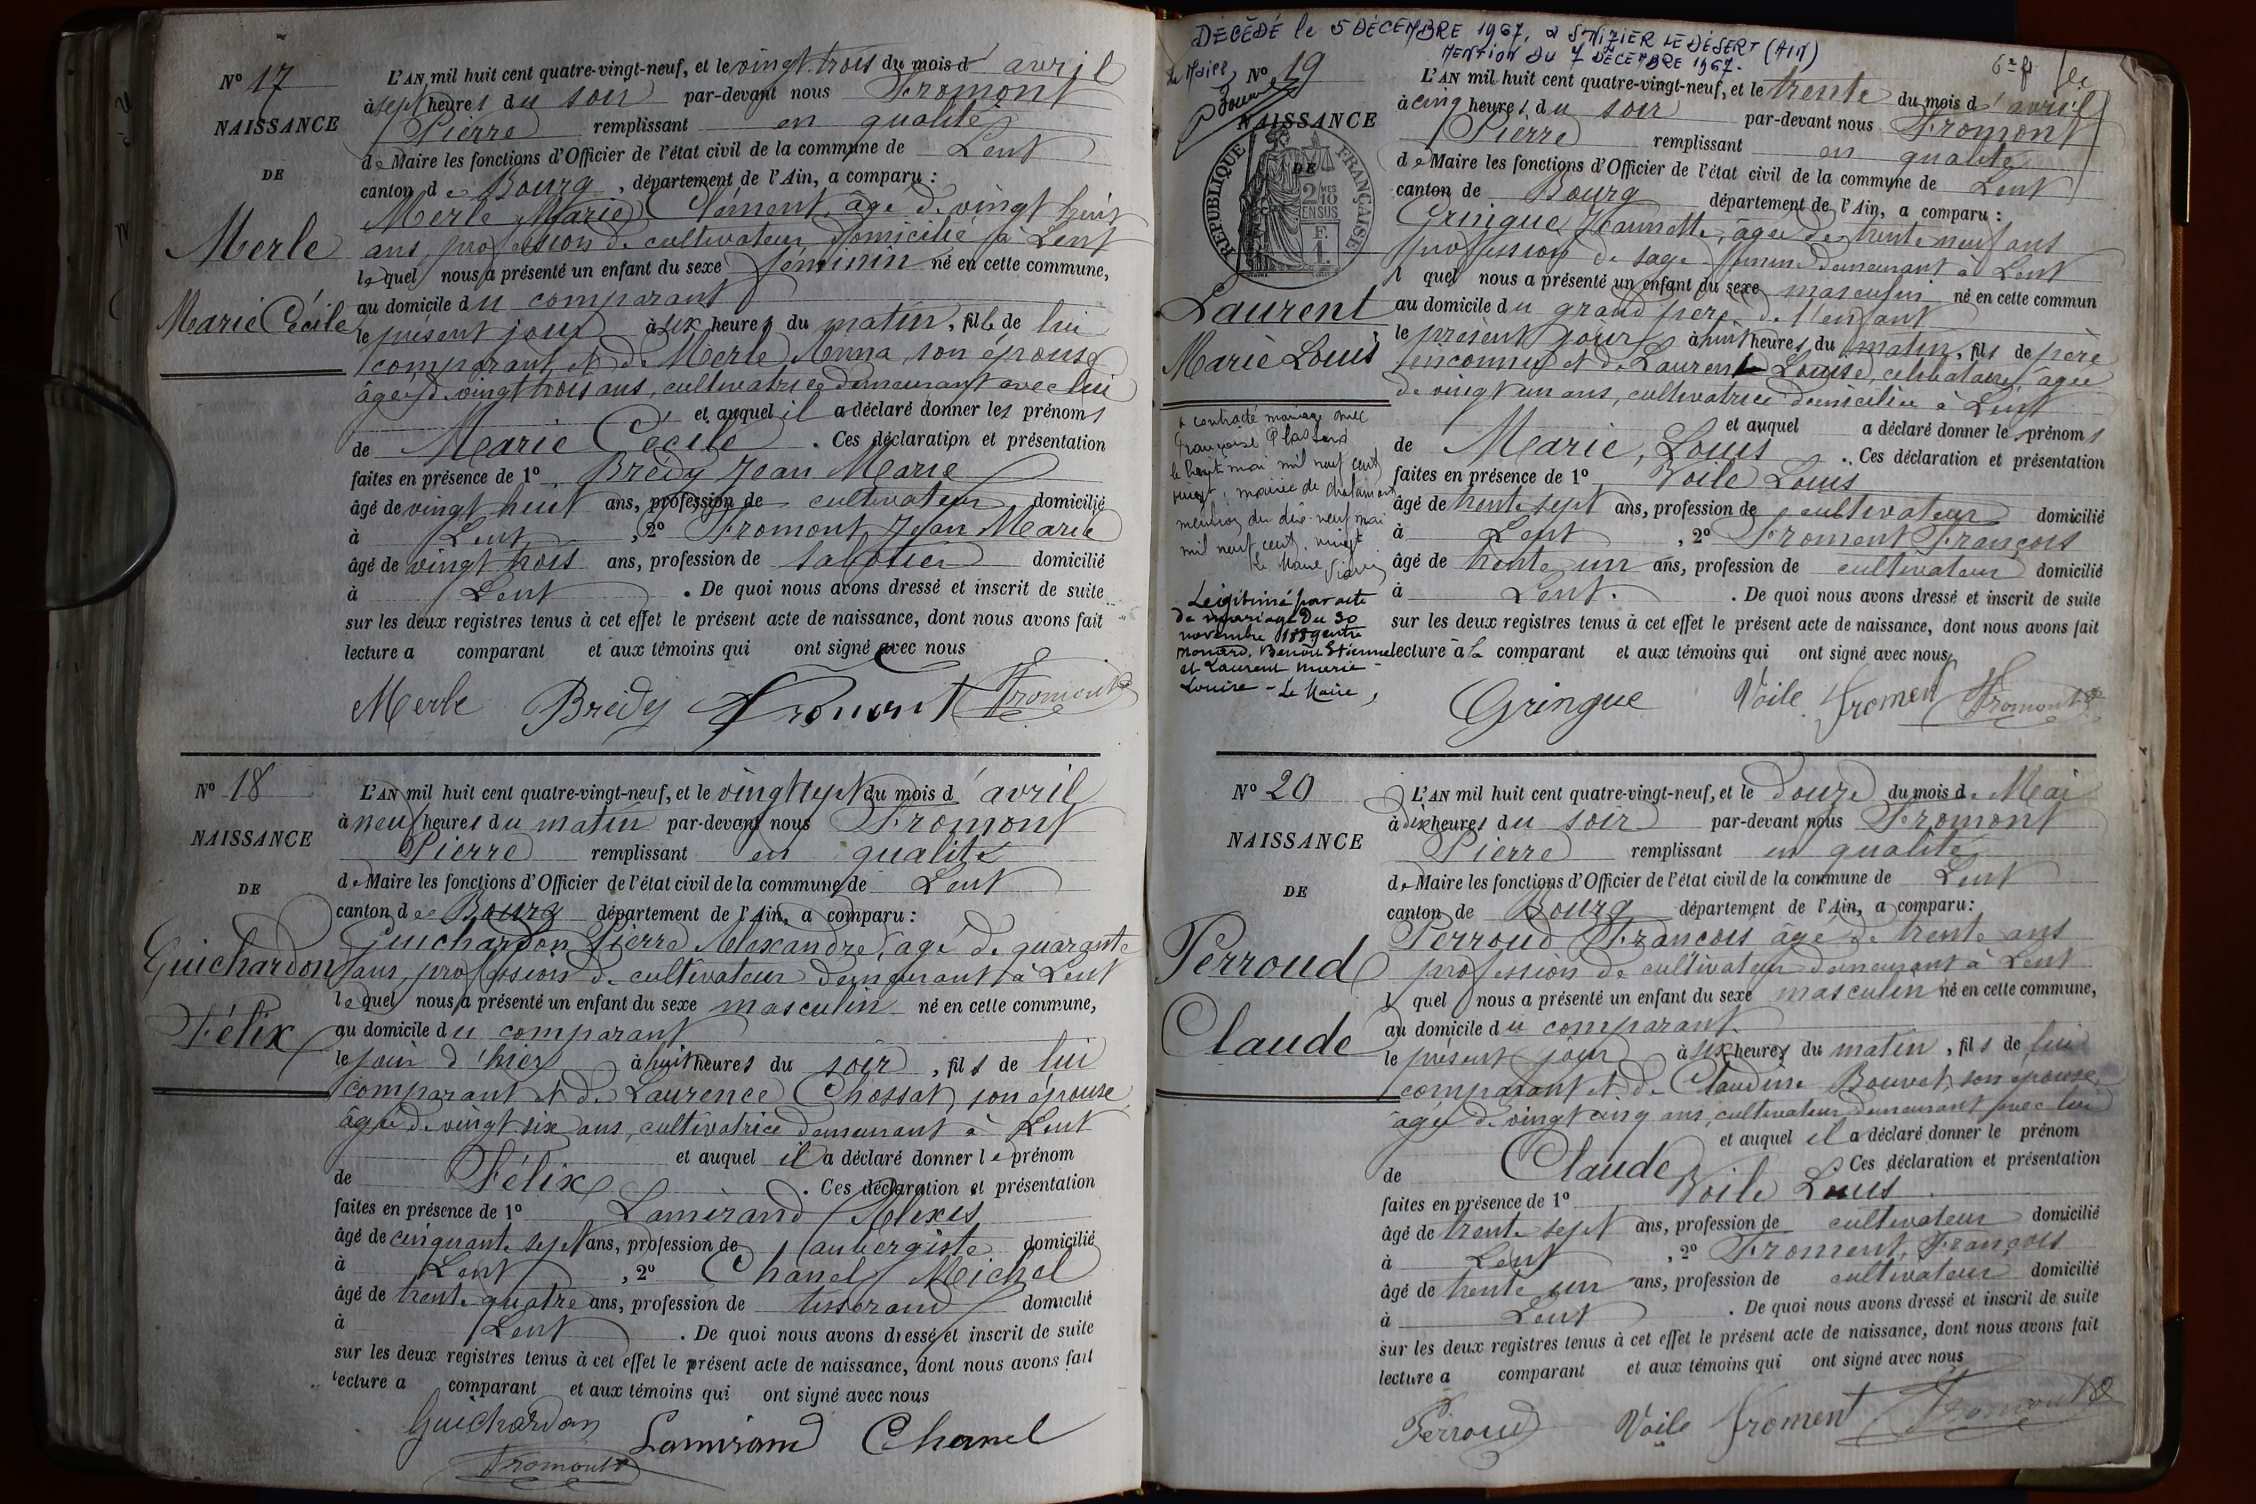 N° 17
NAISSANCE
DE
Merle
Marie Cécile
L'AN mil huit cent quatre-vingt-neuf, et le vingt trois du mois d'avril
à sept heures du soir par-devant nous Fromont
Pierre remplissant en qualité
de Maire les fonctions d'Officier de l'état civil de la commune de Lent
canton de Bourg, département de l'Ain, a comparu :
Merle Marie Clément, âgé de vingt huit
ans, profession de cultivateur domicilié à Lent
lequel nous a présenté un enfant du sexe féminin né en cette commune,
au domicile du comparant
le présent jour à six heures du matin, fille de lui
comparant et de Merle Anna, son épouse
âgée de vingt trois ans, cultivatrice demeurant avec lui
et auquel il a déclaré donner les prénoms
de Marie Cécile. Ces déclaration et présentation
faites en présence de 1° Brédy Jean Marie
âgé de vingt huit ans, profession de cultivateur domicilié
à Lent, 2° Fromont Jean Marie
âgé de vingt trois ans, profession de sabotier domicilié
à Lent. De quoi nous avons dressé et inscrit de suite
sur les deux registres tenus à cet effet le présent acte de naissance, dont nous avons fait
lecture a comparant et aux témoins qui ont signé avec nous
Merle Brédy Fromont Fromont
N° 18
NAISSANCE
DE
Guichardon
Félix
L'AN mil huit cent quatre-vingt-neuf, et le vingt sept du mois d'avril
à neuf heures du matin par-devant nous Fromont
Pierre remplissant en qualité
de Maire les fonctions d'Officier de l'état civil de la commune de Lent
canton de Bourg département de l'Ain, a comparu :
Guichardon Pierre Alexandre, âgé de quarante
ans, profession de cultivateur demeurant à Lent
lequel nous a présenté un enfant du sexe masculin né en cette commune,
au domicile du comparant
le jour d'hier à huit heures du soir, fils de lui
comparant et de Laurence Chossat, son épouse
âgée de vingt six ans, cultivatrice demeurant à Lent
et auquel il a déclaré donner le prénom
de Félix. Ces déclaration et présentation
faites en présence de 1° Lamirand Alexis
âgé de cinquante sept ans, profession de aubergiste domicilié
à Lent, 2° Chanel Michel
âgé de trente quatre ans, profession de tisserand domicilié
à Lent. De quoi nous avons dressé et inscrit de suite
sur les deux registres tenus à cet effet le présent acte de naissance, dont nous avons fait
lecture a comparant et aux témoins qui ont signé avec nous
Guichardon Lamirand Chanel
Fromont
DÉCÉDÉ le 5 DÉCEMBRE 1967, à ST NIZIER LE DÉSERT (AIN)
MENTION DU 7 DÉCEMBRE 1967.
Le Maire,
N° 19
NAISSANCE
DE
RÉPUBLIQUE FRANÇAISE
2/10 EN SUS
F. 1.
Laurent
Marie Louis
A contracté mariage avec
Françoise
le huit mai mil neuf cent
vingt, mairie de Chalamont
mention du dix-neuf mai
mil neuf cent vingt
Le Maire
Légitimé par acte
de mariage du 30
novembre 1889 entre
Monard, Benoit Etienne
et Laurent Marie
Louise - Le Maire,
L'AN mil huit cent quatre-vingt-neuf, et le trente du mois d'avril
à cinq heures du soir par-devant nous Fromont
Pierre remplissant en qualité
de Maire les fonctions d'Officier de l'état civil de la commune de Lent
canton de Bourg département de l'Ain, a comparu :
Gringue Jeannette, âgée de trente neuf ans
profession de sage-femme demeurant à Lent
l quel nous a présenté un enfant du sexe masculin né en cette commun
au domicile du grand père de l'enfant
le présent jour à huit heures du matin, fils de père
inconnu et de Laurent Louise, célibataire, âgée
de vingt un ans, cultivatrice domiciliée à Lent
et auquel a déclaré donner les prénoms
de Marie, Louis. Ces déclaration et présentation
faites en présence de 1° Voile Louis
âgé de trente sept ans, profession de cultivateur domicilié
à Lent, 2° Froment François
âgé de trente un ans, profession de cultivateur domicilié
à Lent. De quoi nous avons dressé et inscrit de suite
sur les deux registres tenus à cet effet le présent acte de naissance, dont nous avons fait
lecture à la comparant et aux témoins qui ont signé avec nous
Gringue Voile Froment Fromont
N° 20
NAISSANCE
DE
Perroud
Claude
L'AN mil huit cent quatre-vingt-neuf, et le douze du mois de Mai
à dix heures du soir par-devant nous Fromont
Pierre remplissant en qualité
de Maire les fonctions d'Officier de l'état civil de la commune de Lent
canton de Bourg département de l'Ain, a comparu :
Perroud François âgé de trente ans
profession de cultivateur demeurant à Lent
l quel nous a présenté un enfant du sexe masculin né en cette commune,
au domicile du comparant
le présent jour à six heures du matin, fils de lui
comparant et de Claudine Bouvet, son épouse
âgée de vingt cinq ans, cultivateur demeurant avec lui
et auquel il a déclaré donner le prénom
de Claude Ces déclaration et présentation
faites en présence de 1° Voile Louis
âgé de trente sept ans, profession de cultivateur domicilié
à Lent, 2° Froment, François
âgé de trente un ans, profession de cultivateur domicilié
à Lent. De quoi nous avons dressé et inscrit de suite
sur les deux registres tenus à cet effet le présent acte de naissance, dont nous avons fait
lecture a comparant et aux témoins qui ont signé avec nous
Perroud Voile Froment Fromont